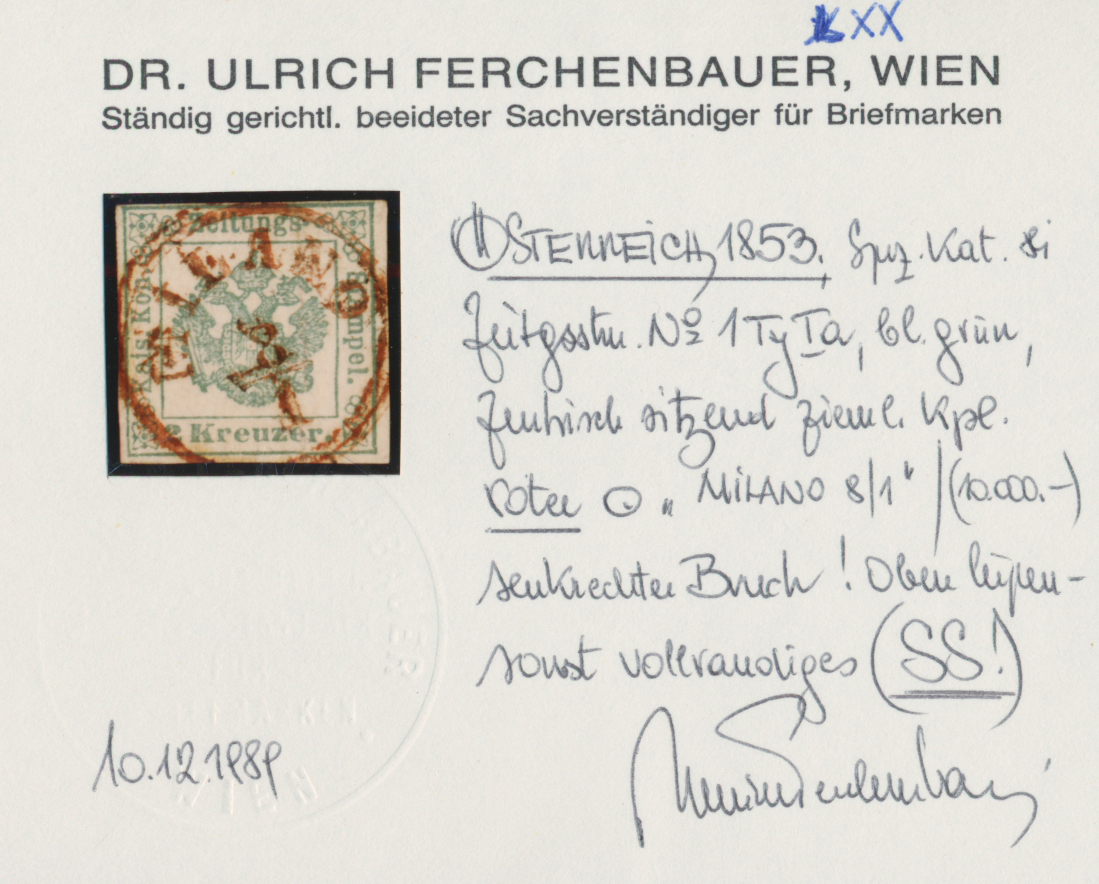 XX
DR. ULRICH FERCHENBAUER, WIEN
Ständig gerichtl. beeideter Sachverständiger für Briefmarken
Zeitungs-
Kais. Kön.
Stämpel.
2 Kreuzer.
MILANO
8/1
ÖSTERREICH, 1853. Spz. Kat.
Zeitgsstm. No 1 Ty Ia, bl. grün,
zentrisch sitzend zieml. kpl.
roter "MILANO 8/1" (10.000.-)
senkrechter Bruch! Oben lupen-
sonst vollrandiges (SS!)
BAUER
FÜR
BRIEFMARKEN
WIEN
10.12.1989